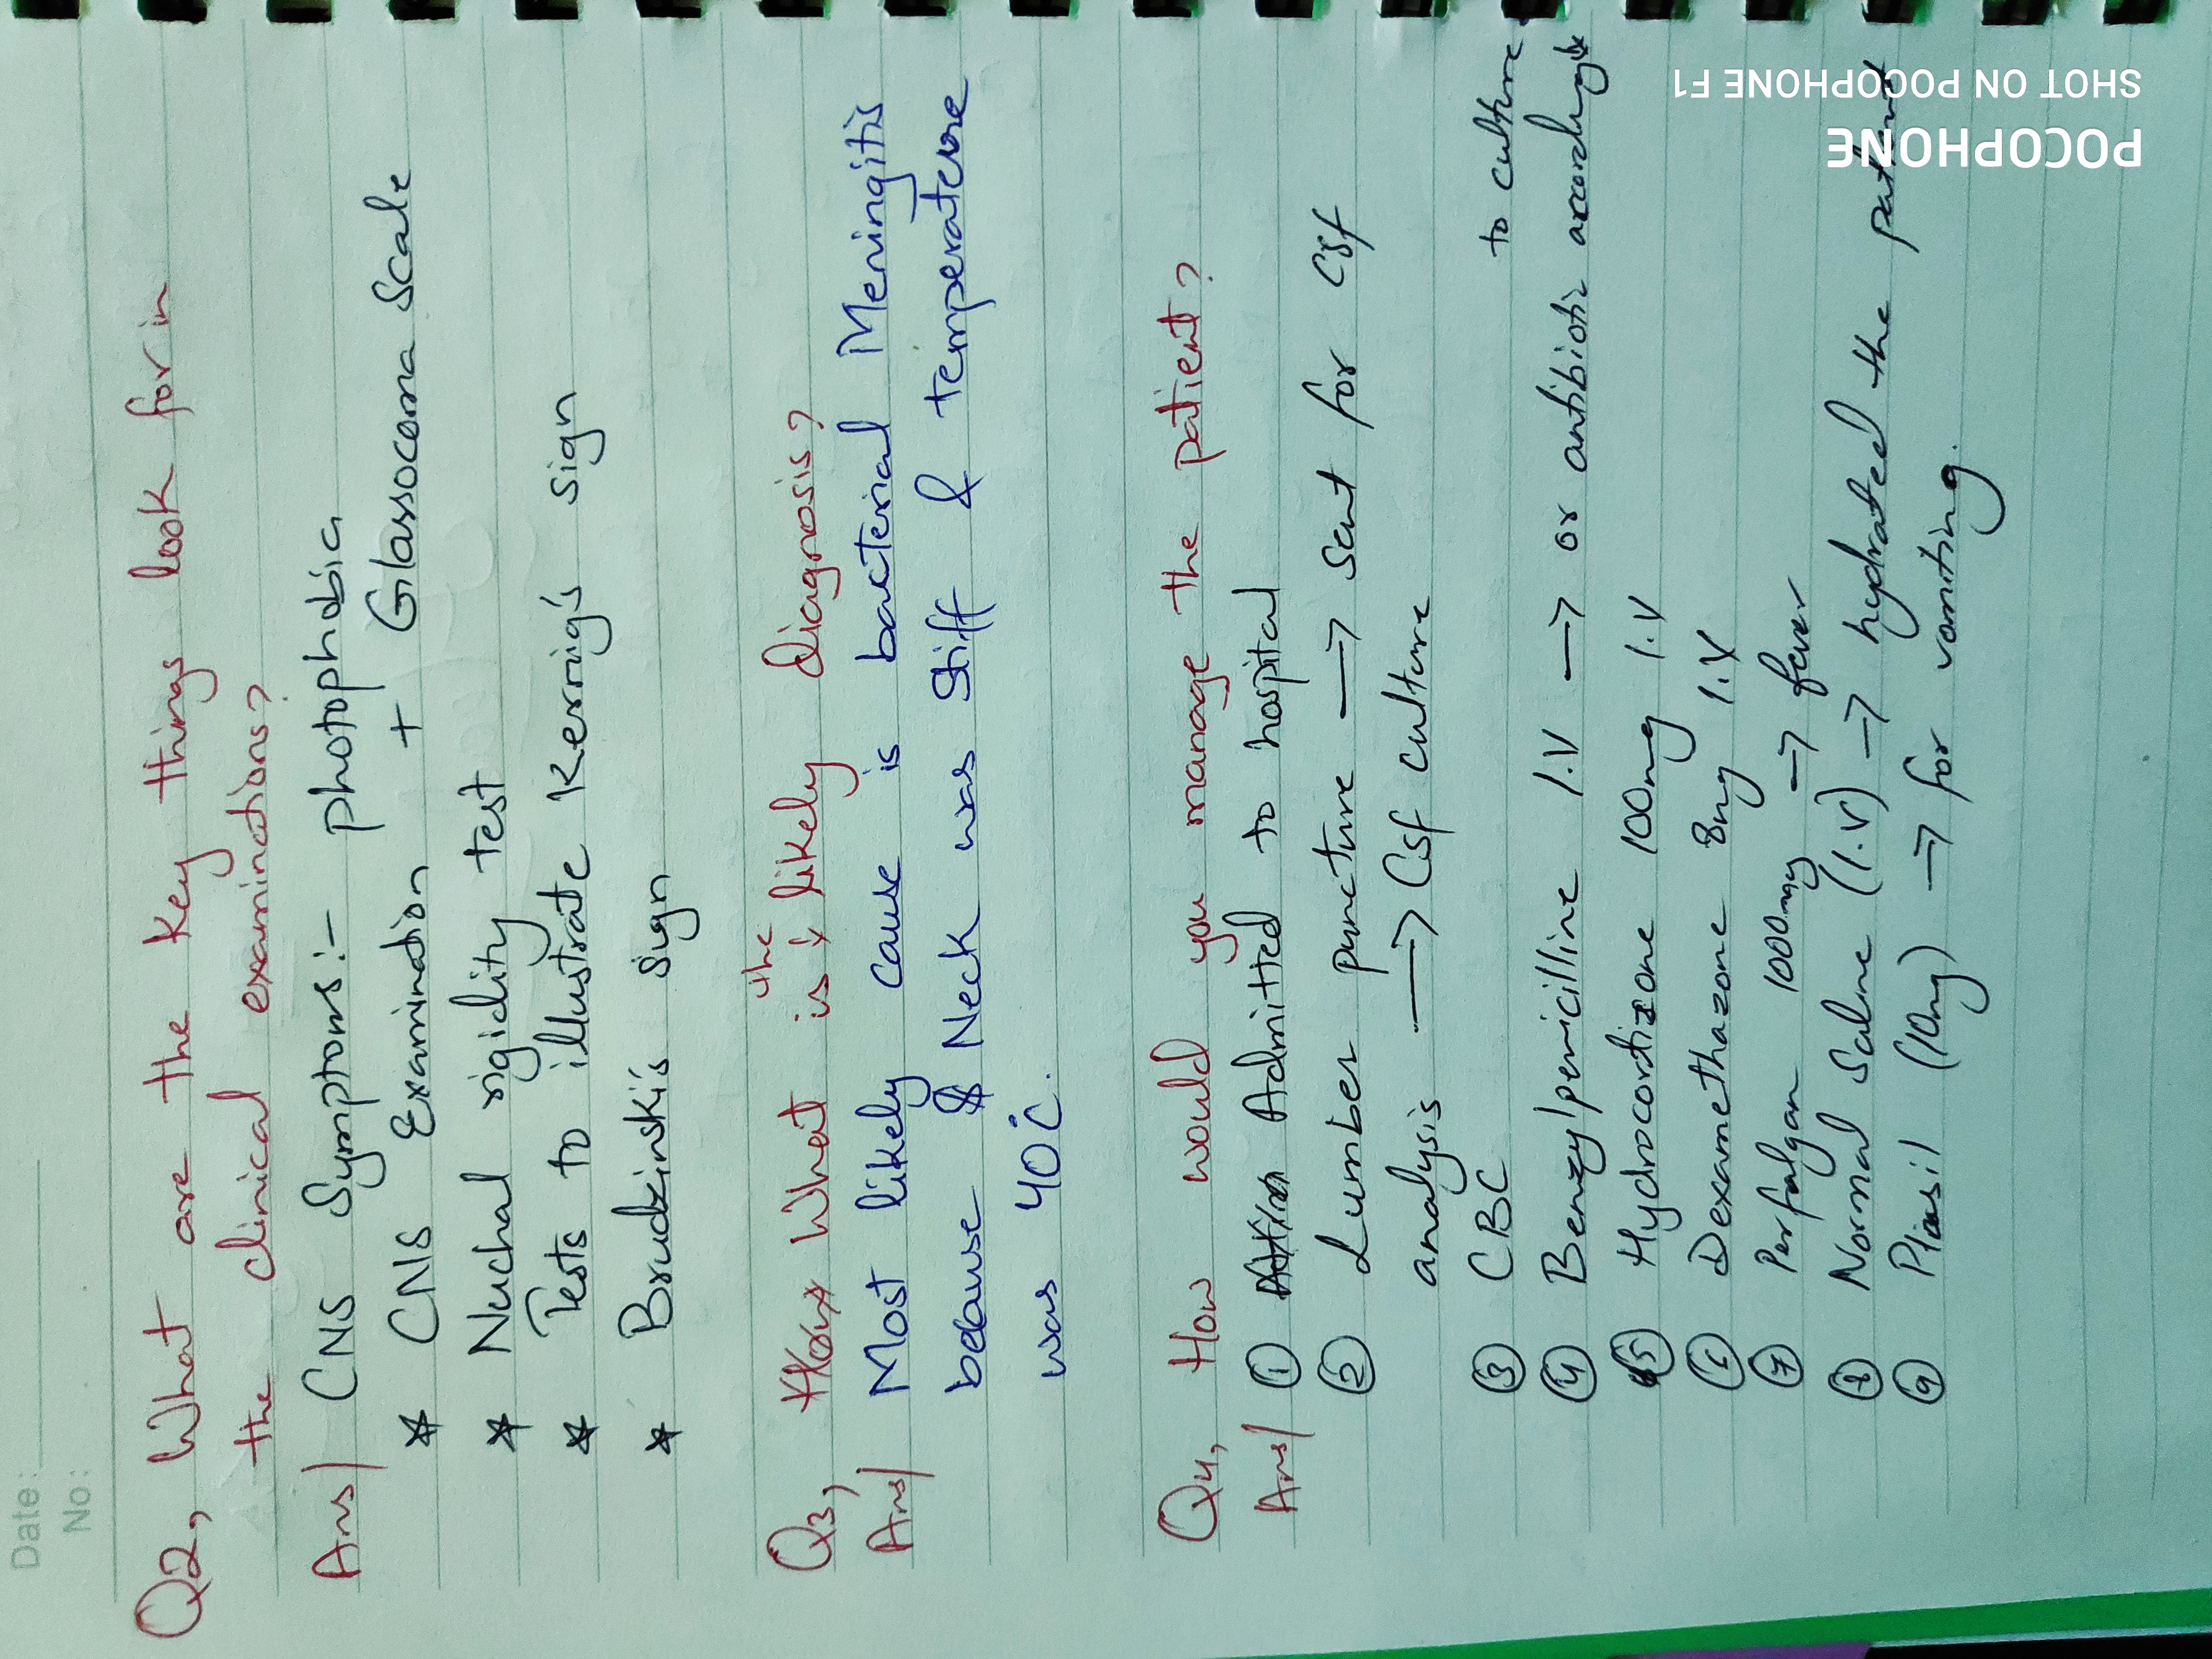 Date:
No:
Q2, What are the key things look for in
the clinical examinations?
Ans/ CNS Symptoms:- photophobia
* CNS Examination + Glassocoma Scale
* Nuchal rigidity test
* Tests to illustrate Kerrig's sign
* Brudzinski's sign
Q3, How What is the likely diagnosis?
Ans/ Most likely cause is bacterial Meningitis
because Neck was stiff & temperature
was 40°C.
Q4, How would you manage the patient?
Ans/ ① Admitted to hospital
② Lumber puncture → sent for Csf
analysis → Csf culture
③ CBC
④ Benzylpenicilline I.V → or antibiotic accordingly to culture
⑤ Hydrocortizone 100mg I.V
⑥ Dexamethazone 8mg I.V
⑦ Perfalgan 1000mg → fever
⑧ Normal Saline (I.V) → hydrated the patient
⑨ Plasil (10mg) → for vomiting.
POCOPHONE
SHOT ON POCOPHONE F1